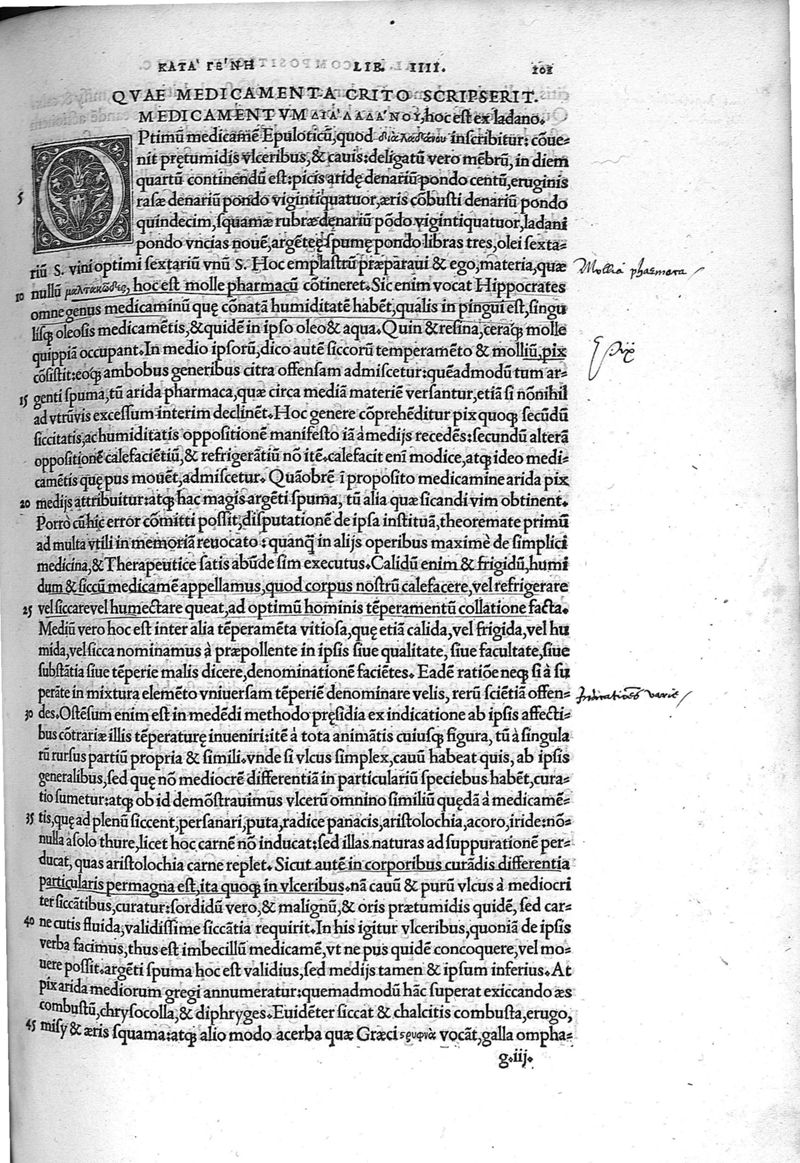 ΚΑΤΑ' ΓΕ'ΝΗ LIB. IIII. 101
QVAE MEDICAMENTA CRITO SCRIPSERIT.
MEDICAMENTVM ΔΙΑ' ΛΑΔΑ'ΝΟΥ, hoc est ex ladano.
OPtimũ medicamẽ Epuloticũ, quod inscribitur: cõue⸗
nit prętumidis vlceribus, & cauis: deligatũ vero mẽbrũ, in diem
quartũ continendũ est: picis aridę denariũ pondo centũ, eruginis
5 rasæ denariũ pondo vigintiquatuor, æris cõbusti denariũ pondo
quindecim, squamæ rubræ denariũ põdo vigintiquatuor, ladani
pondo vncias nouẽ, argẽteę spumę pondo libras tres, olei sexta⸗
riũ S. vini optimi sextariũ vnũ S. Hoc emplastrũ præparaui & ego, materia, quæ Mollia pharmaca
10 nullũ μαλτακῶδες, hoc est molle pharmacũ cõtineret. Sic enim vocat Hippocrates
omne genus medicaminũ quę cõnatã humiditatẽ habẽt, qualis in pingui est, singu
lisq; oleosis medicamẽtis, & quidẽ in ipso oleo & aqua. Quin & resina, ceraq; molle
quippiã occupant. In medio ipsorũ, dico autẽ siccorũ temperamẽto & molliũ, pix Pix
cõsistit: eoq; ambobus generibus citra offensam admiscetur: quẽadmodũ tum ar⸗
15 genti spuma, tũ arida pharmaca, quæ circa mediã materiẽ versantur, etiã si nõnihil
ad vtrũuis excessum interim declinẽt. Hoc genere cõprehẽditur pix quoq; secũdũ
siccitatis, ac humiditatis oppositionẽ manifesto iã à medijs recedẽs: secundũ alterã
oppositionẽ calefaciẽtiũ, & refrigerãtiũ nõ itẽ. calefacit enĩ modice, atq; ideo medi⸗
camẽtis quę pus mouẽt, admiscetur. Quãobrẽ ĩ proposito medicamine arida pix
20 medijs attribuitur: atq; hac magis argẽti spuma, tũ alia quæ sicandi vim obtinent.
Porrò cũ hic error cõmitti possit, disputationẽ de ipsa instituã, theoremate primũ
ad multa vtili in memoriã reuocato: quanq̃ in alijs operibus maximè de simplici
medicina, & Therapeutice satis abũde sim executus. Calidũ enim & frigidũ, humi
dum & siccũ medicamẽ appellamus, quod corpus nostrũ calefacere, vel refrigerare
25 vel siccare vel humectare queat, ad optimũ hominis tẽperamentũ collatione facta.
Mediũ vero hoc est inter alia tẽperamẽta vitiosa, quę etiã calida, vel frigida, vel hu
mida, vel sicca nominamus à præpollente in ipsis siue qualitate, siue facultate, siue
substãtia siue tẽperie malis dicere, denominationẽ faciẽtes. Eadẽ ratiõe neq; si à su
perãte in mixtura elemẽto vniuersam tẽperiẽ denominare velis, rerũ sciẽtiã offen⸗ varie
30 des. Ostẽsum enim est in medẽdi methodo pręsidia ex indicatione ab ipsis affecti⸗
bus cõtrariæ illis tẽperaturę inueniri: itẽ à tota animãtis cuiusq; figura, tũ à singula
rũ rursus partiũ propria & simili. vnde si vlcus simplex, cauũ habeat quis, ab ipsis
generalibus, sed quę nõ mediocrẽ differentiã in particulariũ speciebus habẽt, cura⸗
tio sumetur: atq; ob id demõstrauimus vlcerũ omnino similiũ quędã à medicamẽ⸗
35 tis, quę ad plenũ siccent, persanari, puta, radice panacis, aristolochia, acoro, iride: nõ⸗
nulla à solo thure, licet hoc carnẽ nõ inducat: sed illas naturas ad suppurationẽ per⸗
ducat, quas aristolochia carne replet. Sicut autẽ in corporibus curãdis differentia
particularis permagna est, ita quoq; in vlceribus. nã cauũ & purũ vlcus à mediocri
ter siccãtibus, curatur: sordidũ vero, & malignũ, & oris prætumidis quidẽ, sed car⸗
40 ne cutis fluida, validissime siccãtia requirit. In his igitur vlceribus, quoniã de ipsis
verba facimus, thus est imbecillũ medicamẽ, vt ne pus quidẽ concoquere, vel mo⸗
uere possit. argẽti spuma hoc est validius, sed medijs tamen & ipsum inferius. At
pix arida mediorum gregi annumeratur: quemadmodũ hãc superat exiccando æs
combustũ, chrysocolla, & diphryges. Euidẽter siccat & chalcitis combusta, erugo,
45 misy & æris squama: atq; alio modo acerba quæ Græci στρυφνὰ vocãt, galla ompha⸗
g.iij.